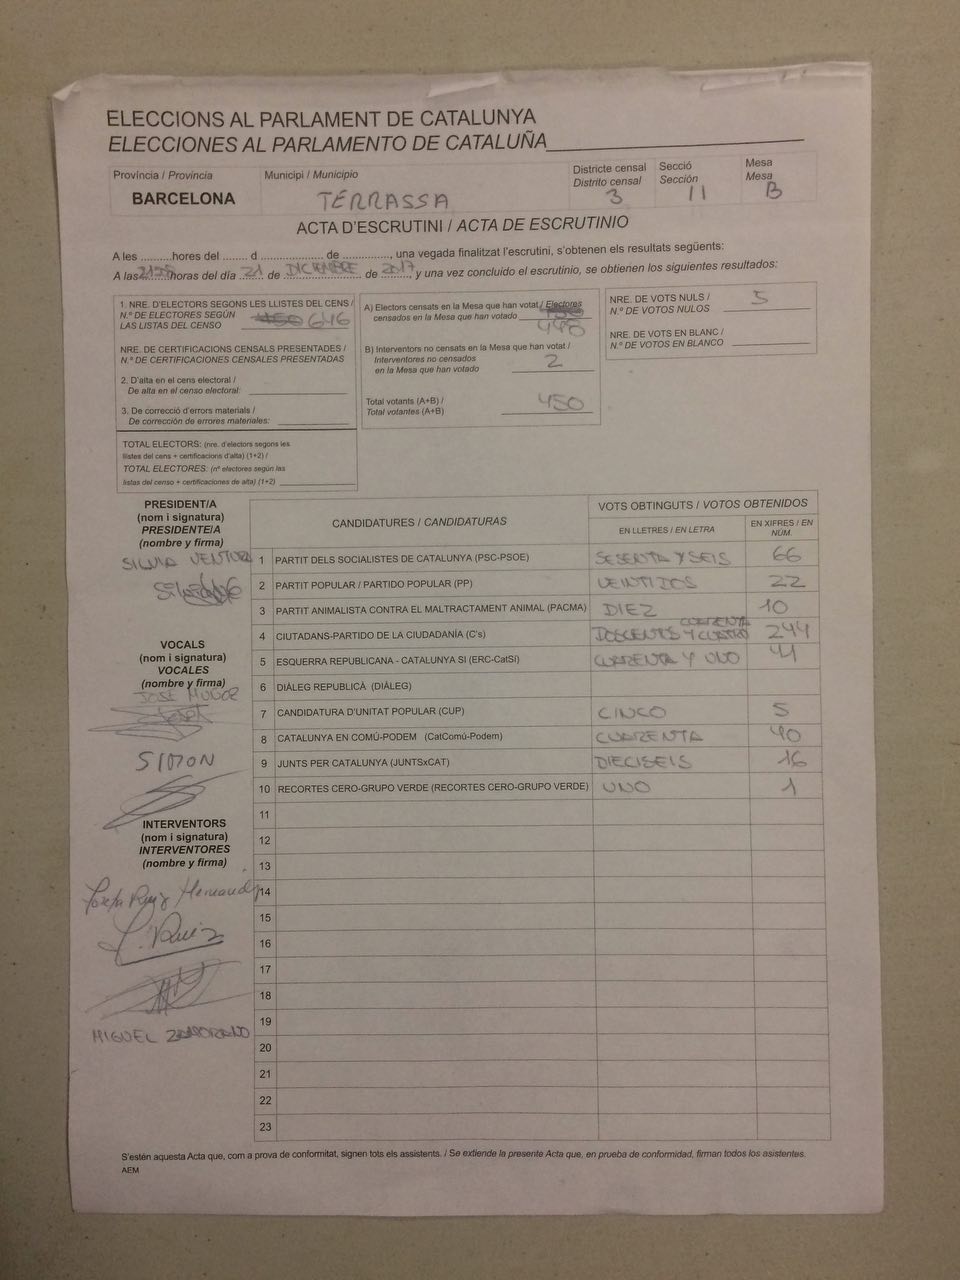 ELECCIONS AL PARLAMENT DE CATALUNYA
ELECCIONES AL PARLAMENTO DE CATALUÑA
Província / Provincia
BARCELONA
Municipi / Municipio
TERRASSA
Districte censal
Distrito censal
3
Secció
Sección
11
Mesa
Mesa
B
ACTA D'ESCRUTINI / ACTA DE ESCRUTINIO
A les ..........hores del ........ d .................... de .............., una vegada finalitzat l'escrutini, s'obtenen els resultats següents:
A las horas del día 21 de DICIEMBRE de 2017, y una vez concluido el escrutinio, se obtienen los siguientes resultados:
1. NRE. D'ELECTORS SEGONS LES LLISTES DEL CENS /
N.º DE ELECTORES SEGÚN
LAS LISTAS DEL CENSO 646
NRE. DE CERTIFICACIONS CENSALS PRESENTADES /
N.º DE CERTIFICACIONES CENSALES PRESENTADAS
2. D'alta en el cens electoral /
De alta en el censo electoral:
3. De correcció d'errors materials /
De corrección de errores materiales:
TOTAL ELECTORS: (nre. d'electors segons les
llistes del cens + certificacions d'alta) (1+2) /
TOTAL ELECTORES: (nº electores según las
listas del censo + certificaciones de alta) (1+2)
A) Electors censats en la Mesa que han votat / Electores
censados en la Mesa que han votado
448
B) Interventors no censats en la Mesa que han votat /
Interventores no censados
en la Mesa que han votado 2
Total votants (A+B) /
Total votantes (A+B) 450
NRE. DE VOTS NULS /
N.º DE VOTOS NULOS 5
NRE. DE VOTS EN BLANC /
N.º DE VOTOS EN BLANCO
PRESIDENT/A
(nom i signatura)
PRESIDENTE/A
(nombre y firma)
SILVIA VENTURA
VOCALS
(nom i signatura)
VOCALES
(nombre y firma)
JOSE MUÑOZ
SIMON
INTERVENTORS
(nom i signatura)
INTERVENTORES
(nombre y firma)
Ruiz
L. Ruiz
MIGUEL ZAMORANO
CANDIDATURES / CANDIDATURAS
VOTS OBTINGUTS / VOTOS OBTENIDOS
EN LLETRES / EN LETRA
EN XIFRES / EN NÚM.
1 PARTIT DELS SOCIALISTES DE CATALUNYA (PSC-PSOE) SESENTA Y SEIS 66
2 PARTIT POPULAR / PARTIDO POPULAR (PP) VEINTIDOS 22
3 PARTIT ANIMALISTA CONTRA EL MALTRACTAMENT ANIMAL (PACMA) DIEZ 10
4 CIUTADANS-PARTIDO DE LA CIUDADANÍA (C's) CUARENTA Y CUATRO 244
5 ESQUERRA REPUBLICANA - CATALUNYA SI (ERC-CatSí) CUARENTA Y UNO 41
6 DIÀLEG REPUBLICÀ (DIÀLEG)
7 CANDIDATURA D'UNITAT POPULAR (CUP) CINCO 5
8 CATALUNYA EN COMÚ-PODEM (CatComú-Podem) CUARENTA 40
9 JUNTS PER CATALUNYA (JUNTSxCAT) DIECISEIS 16
10 RECORTES CERO-GRUPO VERDE (RECORTES CERO-GRUPO VERDE) UNO 1
11
12
13
14
15
16
17
18
19
20
21
22
23
S'estén aquesta Acta que, com a prova de conformitat, signen tots els assistents. / Se extiende la presente Acta que, en prueba de conformidad, firman todos los asistentes.
AEM